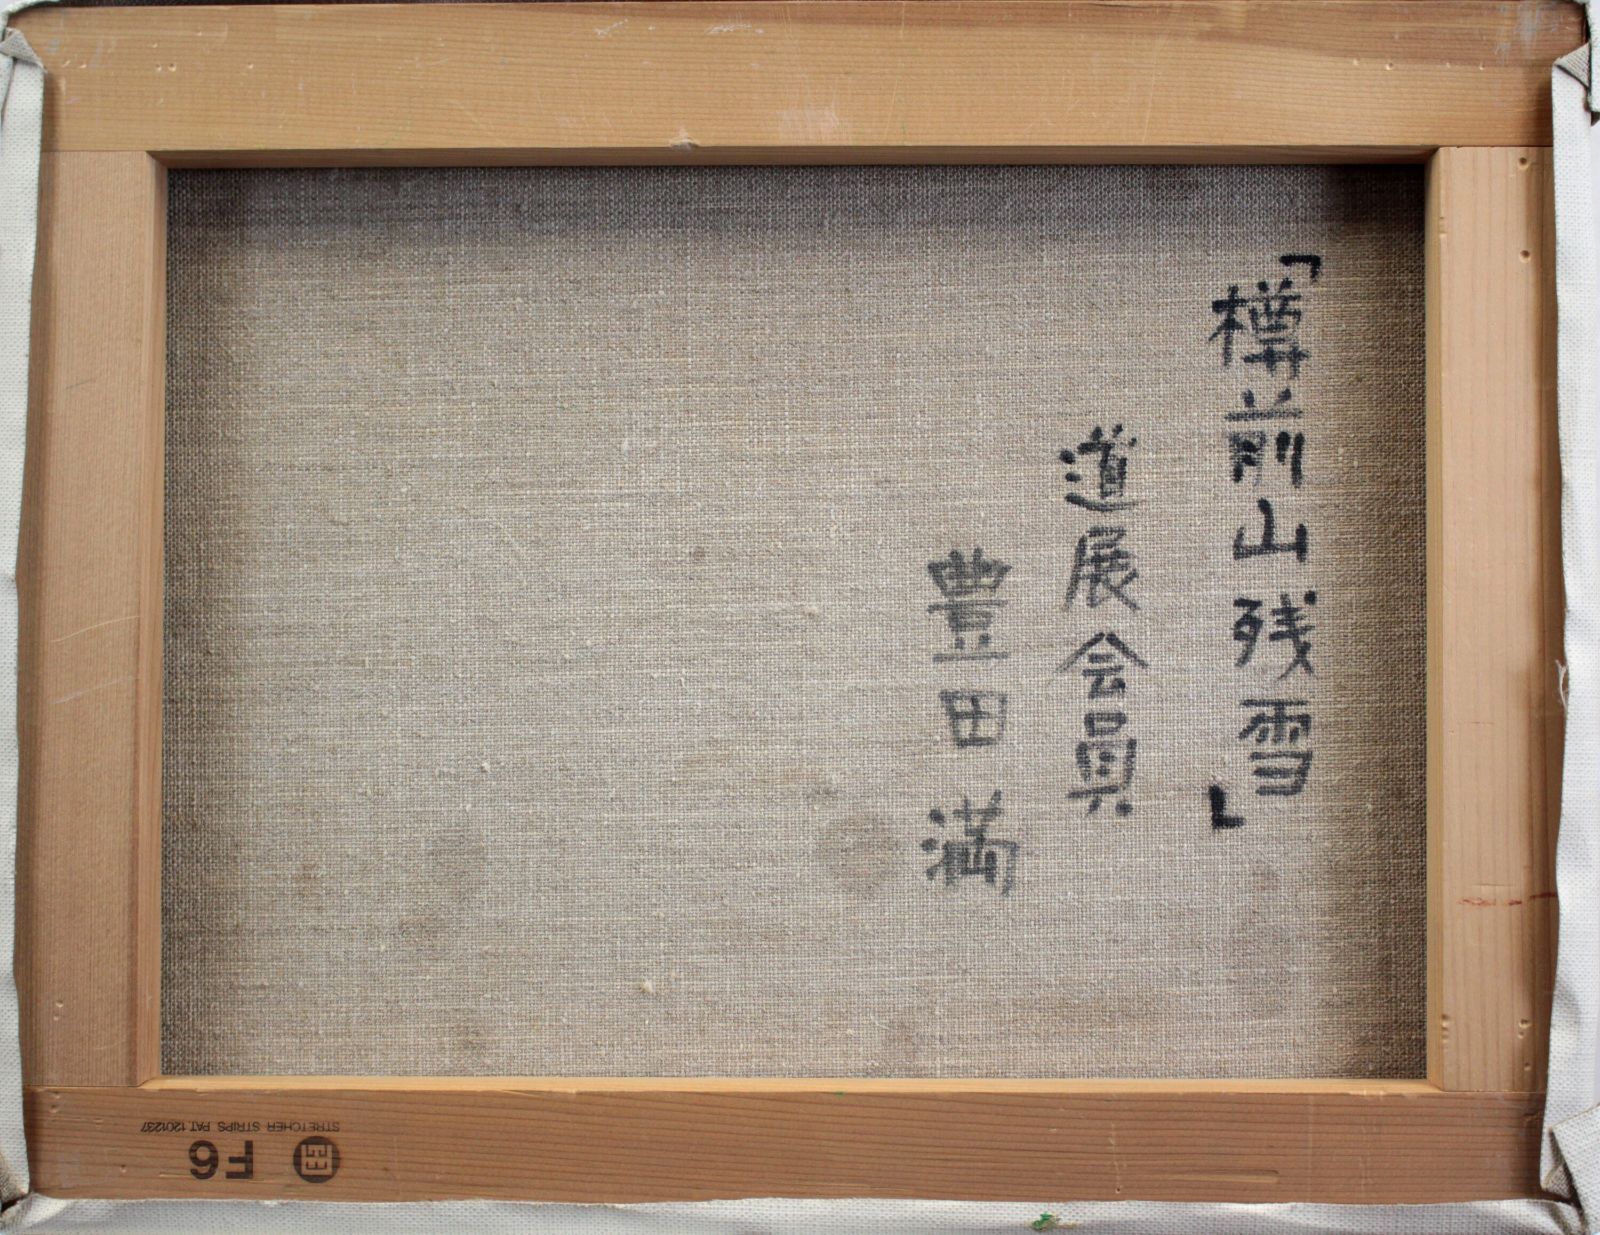 「樽前山残雪」
道展会員
豊田満
STRETCHER STRIPS PAT.1201237
F6